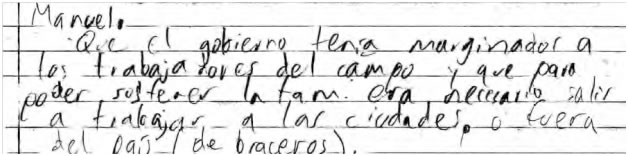 Manuel.
Que el gobierno tenía marginador a
los trabajadores del campo y que para
poder sostener la fam. era necesario salir
a trabajar a las ciudades, o fuera
del país (de braceros).